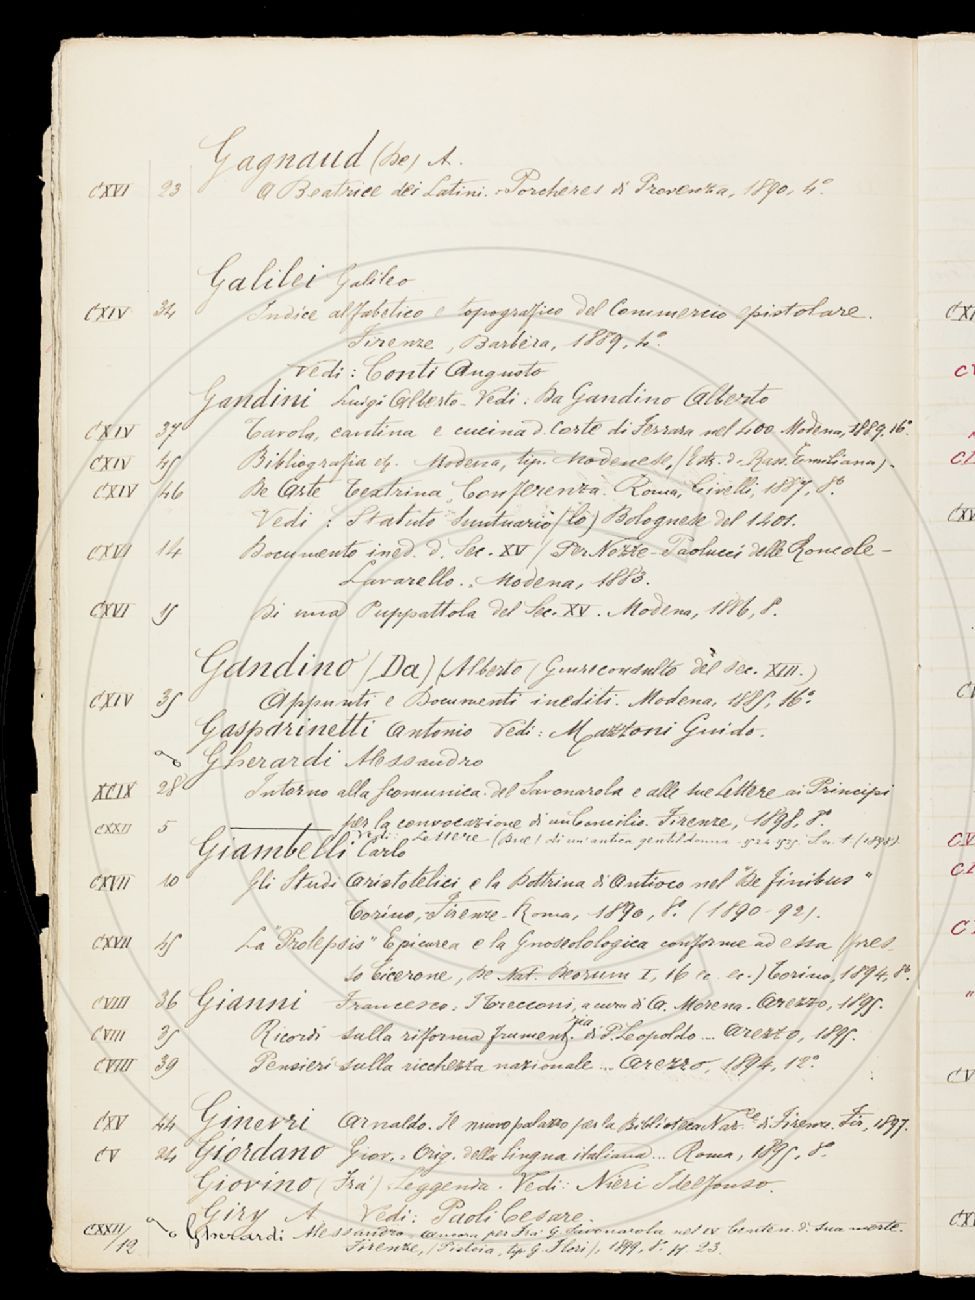 Gagnaud (De) A.
CXVI 23 A Beatrice dei Latini. Porchères di Provenza, 1890, 4°
Galilei Galileo
CXIV 34 Indice alfabetico e topografico del Commercio epistolare.
Firenze, Barbèra, 1889, 4°.
Vedi: Conti Augusto
Gandini Luigi Alberto - Vedi: Da Gandino Alberto
CXIV 37 Tavola, cantina e cucina d. Corte di Ferrara nel 400 Modena, 1889, 16°
CXIV 45 Bibliografia Modena, tip. Modenese, (Estr. d. Rass. Emiliana).
CXIV 46 De Arte Textrina, Conferenza. Roma, Civelli, 1887, 8°
Vedi: Statuto Suntuario (lo) Bolognese del 1401.
CXVI 14 Documento ined. d. Sec. XV (Per Nozze Paolucci delle Roncole -
Lavarello. Modena, 1883.
CXVI 15 Di una Puppattola del Sec. XV. Modena, 1886, 8.
Gandino (Da) (Alberto (Giureconsulto del sec. XIII.)
CXIV 35 Appunti e Documenti inediti. Modena, 1885, 16°
Gasparinetti Antonio Vedi: Mazzoni Guido.
Gherardi Alessandro
XCIX 28 Intorno alla scomunica del Savonarola e alle sue Lettere ai Principi
per la convocazione di un Concilio. Firenze, 1898, 8°.
CXXII 5 Vedi: Lettere (Due) di un'antica gentildonna
Giambelli Carlo
CXVII 10 Gli Studi Aristotelici e la Dottrina di Antioco nel "De finibus"
Torino, Firenze - Roma, 1890, 8°. (1890-92).
CXVII 45 La "Prolepsis" Epicurea e la Gnoseolologica conforme ad essa (pres-
so Cicerone, De Nat. Deorum I, 16 ec. ec.) Torino, 1894, 8°.
CVIII 36 Gianni Francesco, I Trecconi, a cura di A. Morena. Arezzo, 1895.
CVIII 35 Ricordi sulla riforma frumentria di P. Leopoldo ... Arezzo, 1895.
CVIII 39 Pensieri sulla ricchezza nazionale ... Arezzo, 1894, 12°
CXV 44 Ginevri Arnaldo. Il nuovo palazzo per la Biblioteca Naz.le di Firenze. Fir, 1897.
CV 24 Giordano Giov., Orig. della lingua italiana ... Roma, 1895, 8°.
Giovino (Fra) Leggenda. Vedi: Nieri Idelfonso.
Giry A Vedi: Paoli Cesare.
CXXII/12 Gherardi Alessandro, Ancora per Fra G. Savonarola nel IV Centen. di sua morte.
Firenze, (Pistoia, tip. G. Flori), 1899, 8° pp. 23.